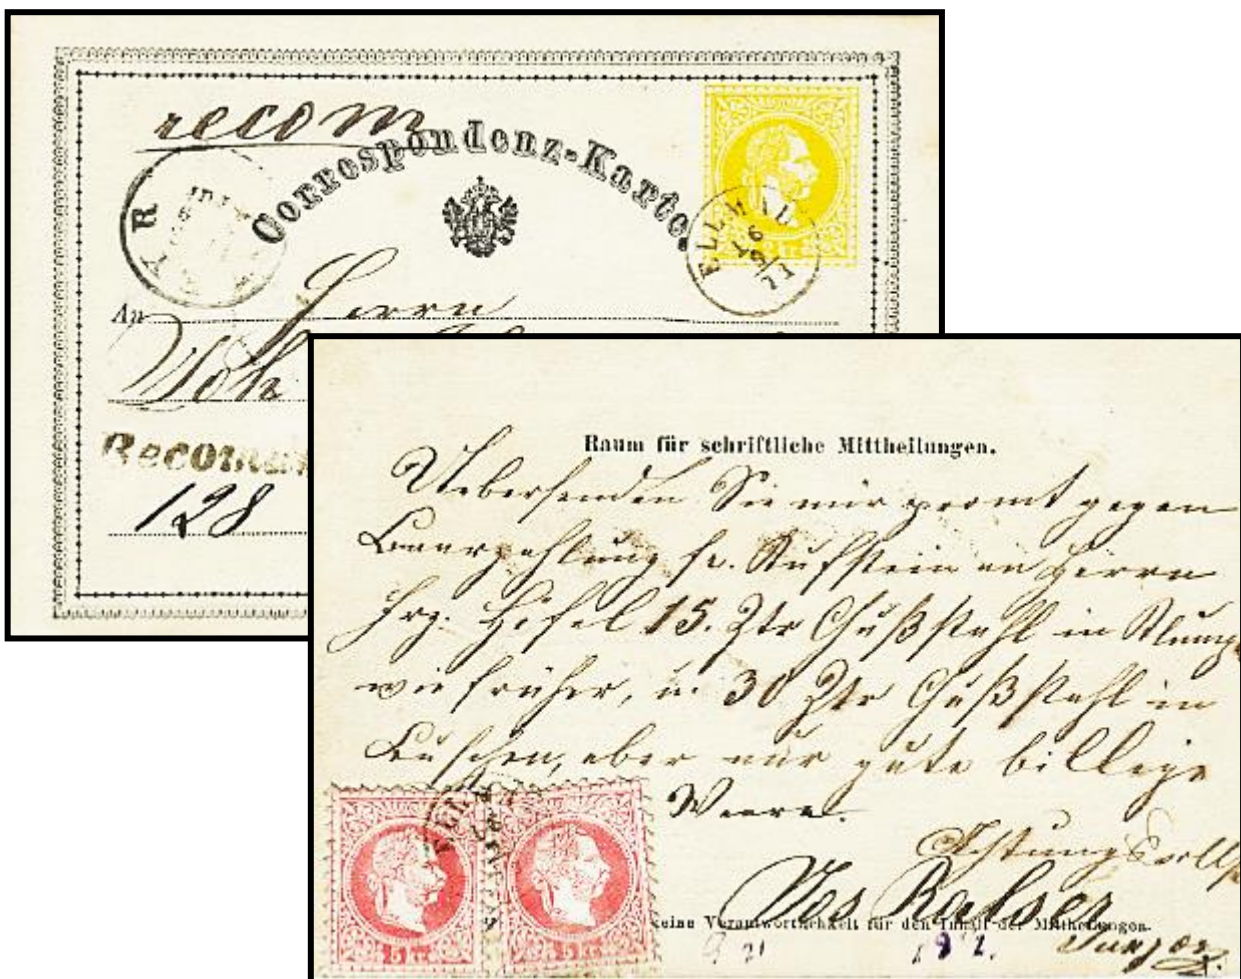 recom
Correspondenz-Karte.
ELLMAU
16
9
71
2 kr
An Herrn
Joh
Recoman
128
Raum für schriftliche Mittheilungen.
Uebersenden Sie mir promt gegen
Baarzahlung fr. Kufstein an Herrn
Frz. Hofel 15. Ztr Gußstahl in
wie früher, u. 30 Ztr Gußstahl in
aber nur gute billige
Waare.
Achtungsvollst
Ralser
5 kr 5 kr
keine Verantwortlichkeit für den Inhalt der Mittheilungen.